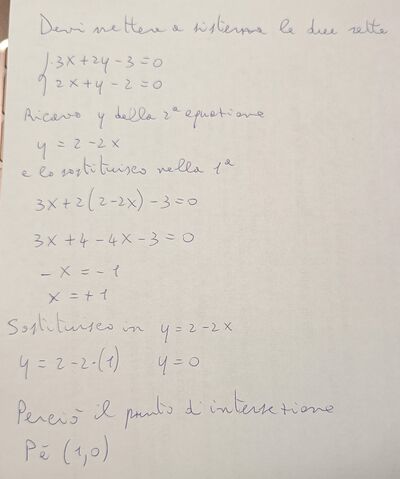 Devi mettere a sistema le due rette
{ 3x+2y-3=0
2x+y-2=0
Ricavo y dalla 2ª equazione
y = 2-2x
e lo sostituisco nella 1ª
3x+2(2-2x)-3=0
3x+4-4x-3=0
-x = -1
x = +1
Sostituisco in y=2-2x
y = 2-2·(1) y=0
Perciò il punto d'intersezione
P è (1,0)